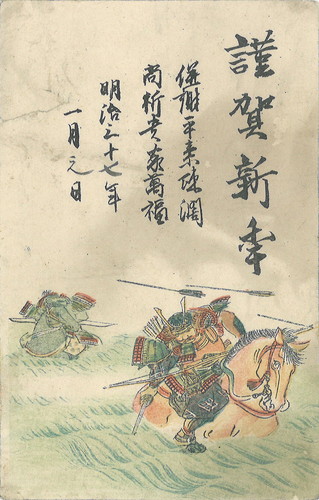 謹賀新秊
併謝平素疎濶
尚祈貴家萬福
明治三十七年
一月元日